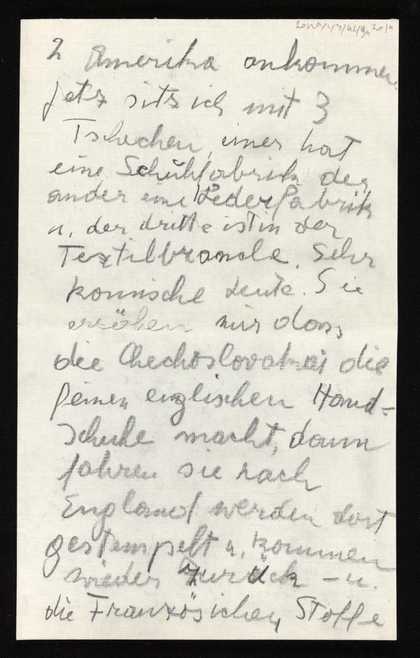 2 Amerika ankommen.
Jetz sitz ich mit 3
Tschechen einer hat
eine Schuhfabrik der
ander eine Lederfabrik
u. der dritte ist in der
Textilbranche. Sehr
komische Leute. Sie
mir dass
die Chechoslovakai die
feinen englischen Hand-
schuhe macht, dann
fahren sie nach
England werden dort
gestempelt u. kommen
wieder zurück - u.
die Französichen Stoffe